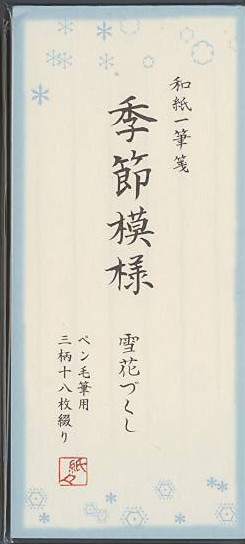 和紙一筆箋
季節模様
雪花づくし
ペン毛筆用
三柄十八枚綴り
紙々